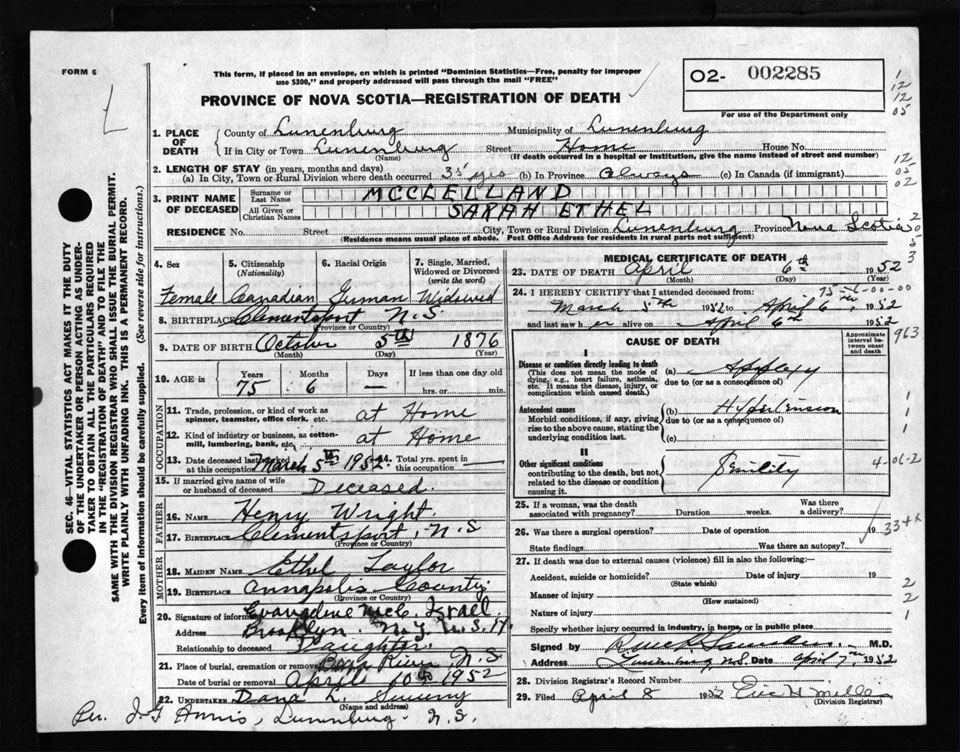 FORM 6
This form, if placed in an envelope, on which is printed "Dominion Statistics—Free, penalty for improper
use $300," and properly addressed will pass through the mail "FREE"
O2- 002285
For use of the Department only
PROVINCE OF NOVA SCOTIA—REGISTRATION OF DEATH
1. PLACE OF DEATH { County of Lunenburg Municipality of Lunenburg
If in City or Town Lunenburg Street Home House No.
(Name) (If death occurred in a hospital or institution, give the name instead of street and number)
2. LENGTH OF STAY (in years, months and days)
(a) In City, Town or Rural Division where death occurred 35 yrs (b) In Province Always (c) In Canada (if immigrant)
3. PRINT NAME OF DECEASED { Surname or Last Name MCCLELLAND
All Given or Christian Names SARAH ETHEL
RESIDENCE No. Street City, Town or Rural Division Lunenburg Province Nova Scotia
(Residence means usual place of abode. Post Office Address for residents in rural parts not sufficient)
4. Sex 5. Citizenship (Nationality) 6. Racial Origin 7. Single, Married, Widowed or Divorced (write the word)
Female Canadian German Widowed
8. BIRTHPLACE Clementsport N.S.
(Province or Country)
9. DATE OF BIRTH October 5th 1876
(Month) (Day) (Year)
10. AGE in Years Months Days If less than one day old
75 6 — hrs. or min.
OCCUPATION
11. Trade, profession, or kind of work as spinner, teamster, office clerk, etc. at Home
12. Kind of industry or business, as cotton-mill, lumbering, bank, etc. at Home
13. Date deceased last worked at this occupation March 5th 1952 14. Total yrs. spent in this occupation —
15. If married give name of wife or husband of deceased Deceased
FATHER
16. NAME Henry Wright
17. BIRTHPLACE Clementsport, N.S
(Province or Country)
MOTHER
18. MAIDEN NAME Ethel Taylor
19. BIRTHPLACE Annapolis County
(Province or Country)
20. Signature of informant Evangeline McC. Israel
Address Brooklyn. N.Y. U.S.A.
Relationship to deceased Daughter
21. Place of burial, cremation or removal Bear River N.S
Date of burial or removal April 10th 1952
22. UNDERTAKER Dana L. Sweeny
(Name and address)
Per. Lunenburg. N.S.
MEDICAL CERTIFICATE OF DEATH
23. DATE OF DEATH April 6th 1952
(Month) (Day) (Year)
24. I HEREBY CERTIFY that I attended deceased from:
March 5th 1952 to April 6th 1952
and last saw her alive on April 6th 1952
CAUSE OF DEATH
Approximate interval between onset and death
I
Disease or condition directly leading to death
(This does not mean the mode of dying, e.g., heart failure, asthenia, etc. It means the disease, injury, or complication which caused death.)
(a) Apoplexy
due to (or as a consequence of)
Antecedent causes
Morbid conditions, if any, giving rise to the above cause, stating the underlying condition last.
(b) Hypertension
due to (or as a consequence of)
(c)
II
Other significant conditions contributing to the death, but not related to the disease or condition causing it.
Senility
25. If a woman, was the death associated with pregnancy? Duration weeks. Was there a delivery?
26. Was there a surgical operation? Date of operation 19
State findings Was there an autopsy?
27. If death was due to external causes (violence) fill in also the following:
Accident, suicide or homicide? Date of injury 19
(State which)
Manner of injury
(How sustained)
Nature of injury
Specify whether injury occurred in industry, in home, or in public place
Signed by M.D.
Address Lunenburg, N.S. Date April 7th 1952
28. Division Registrar's Record Number
29. Filed April 8 1952
(Division Registrar)
SEC. 46—VITAL STATISTICS ACT MAKES IT THE DUTY
OF THE UNDERTAKER OR PERSON ACTING AS UNDERTAKER TO OBTAIN ALL THE PARTICULARS REQUIRED
IN THE "REGISTRATION OF DEATH" AND TO FILE THE
SAME WITH THE DIVISION REGISTRAR WHO SHALL ISSUE THE BURIAL PERMIT.
WRITE PLAINLY WITH UNFADING INK. THIS IS A PERMANENT RECORD.
Every item of information should be carefully supplied. (See reverse side for instructions.)